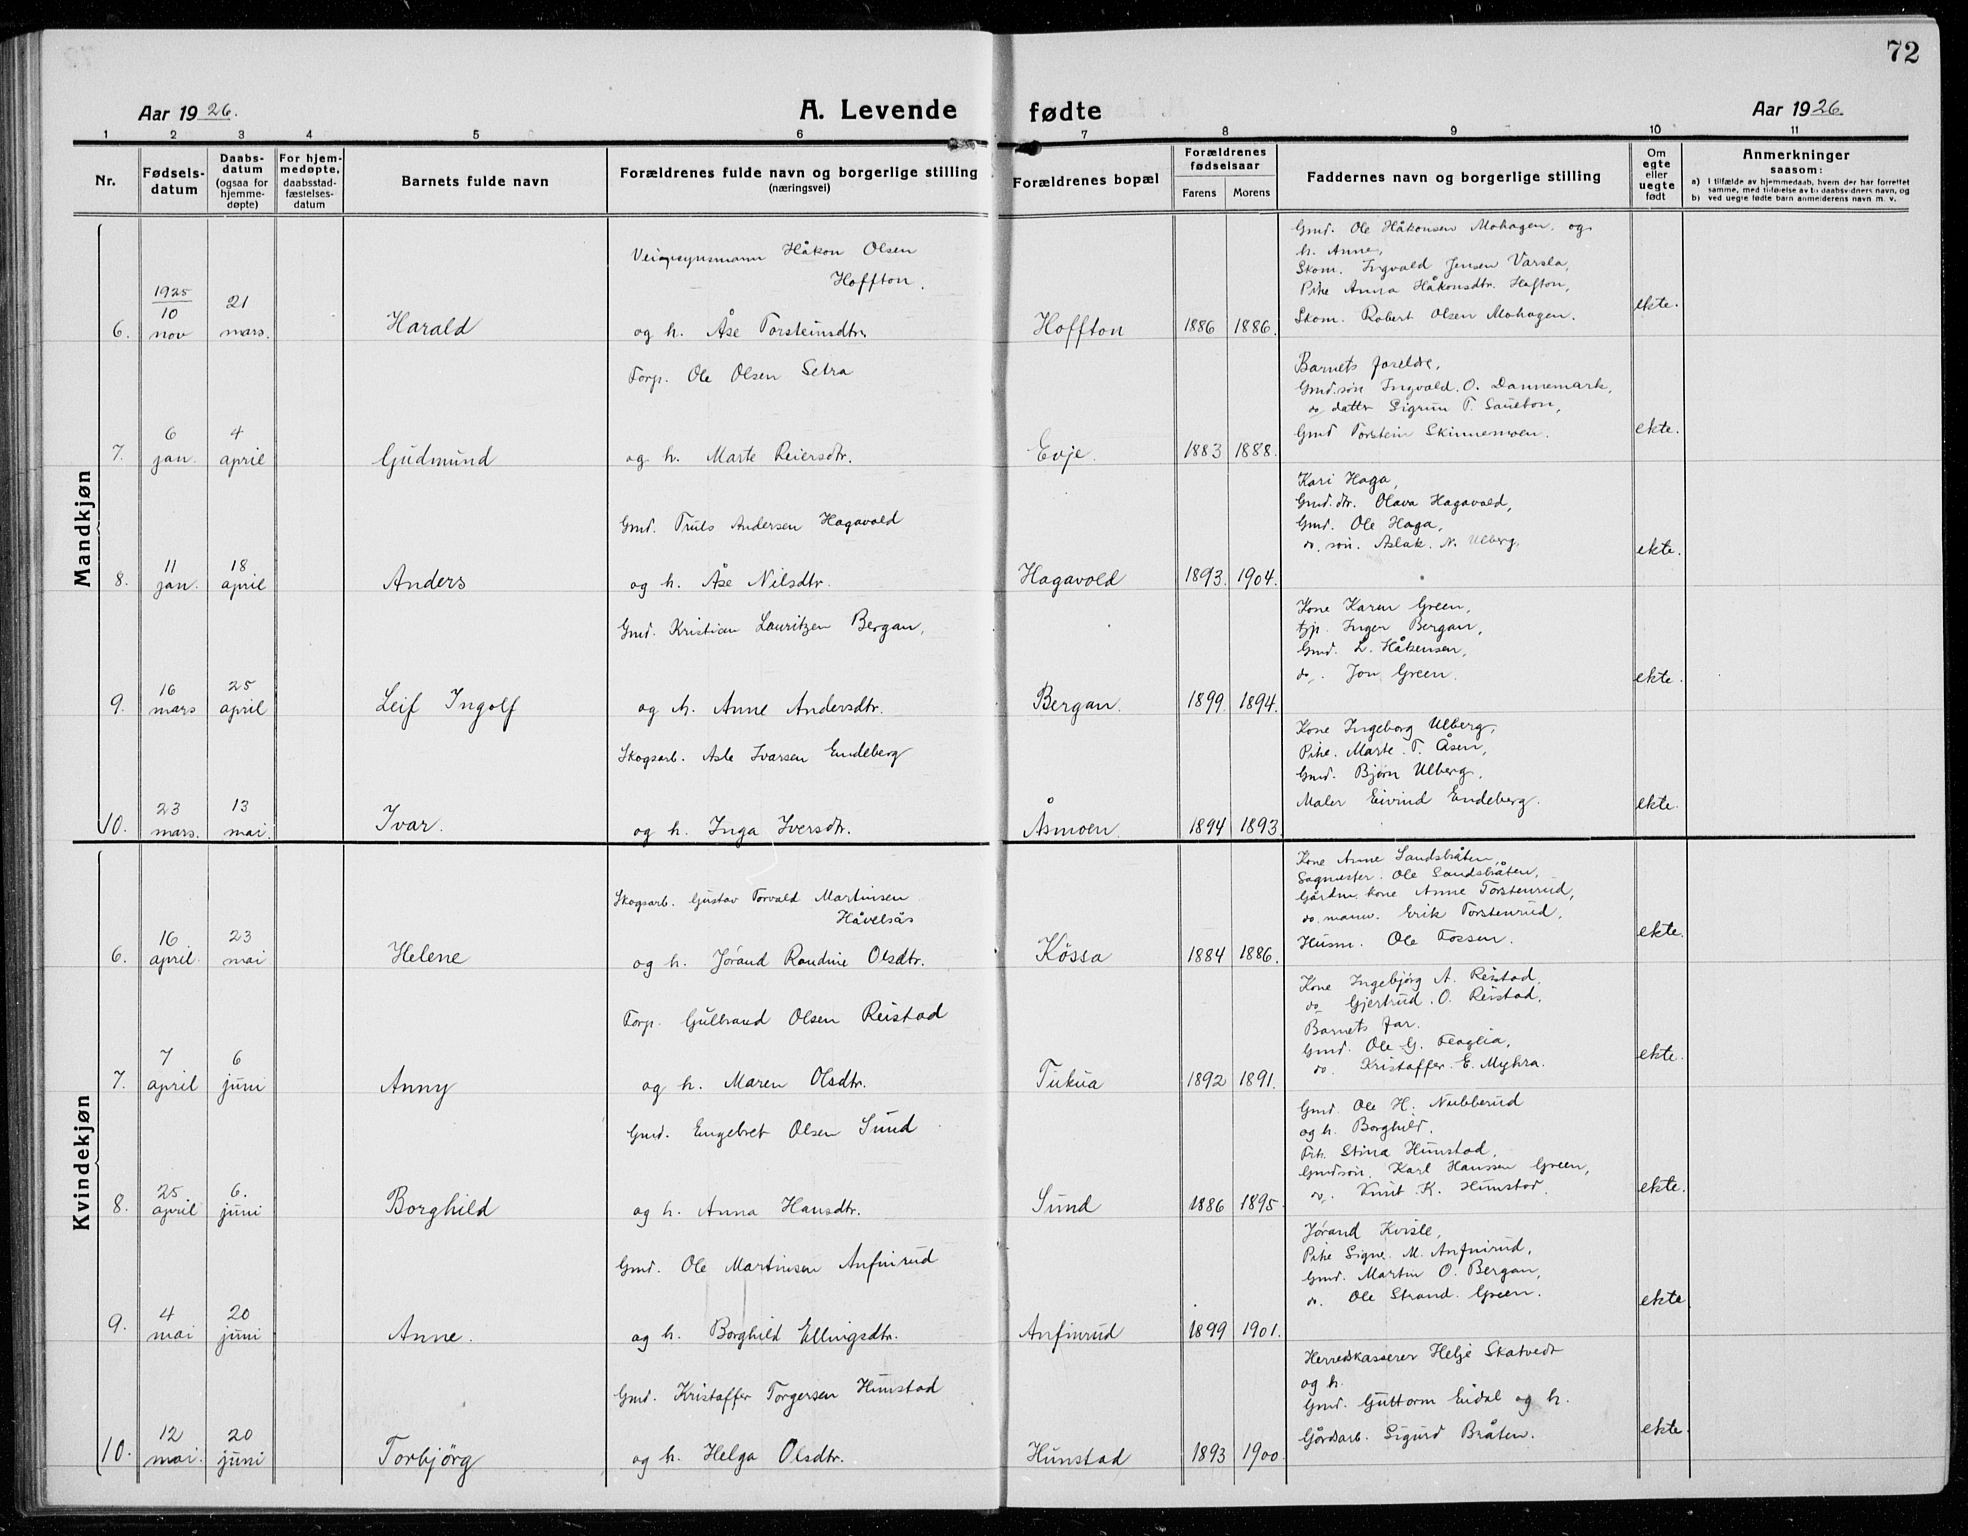 72
Aar 1926.
A. Levende fødte
Aar 1926.
1 2 3 4 5 6 7 8 9 10 11
Nr.
Fødsels-
datum
Daabs-
datum
(ogsaa for
hjemme-
døpte)
For hjem-
medøpte,
daabsstad-
fæstelses-
datum
Barnets fulde navn
Forældrenes fulde navn og borgerlige stilling
(næringsvei)
Forældrenes bopæl
Forældrenes
fødselsaar
Farens Morens
Faddernes navn og borgerlige stilling
Om
egte
eller
uegte
født
Anmerkninger
saasom:
a) I tilfælde av hjemmedaab, hvem der har forrettet
samme, med tilføielse av to daabsvidners navn, og
b) ved uegte fødte barn anmelderens navn m. v.
Mandkjøn
6.
1925
10
nov
21
mars.
Harald
Håkon Olsen
Hoffton.
og h. Åse Torsteinsdtr.
Hoffton
1886 1886.
Gmd. Ole Håkonsen Mohagen. og
h. Anne,
Skom. Ingvald Jensen Varsla,
Pike Anna Håkonsdtr. Hofton,
Skom. Robert Olsen Mohagen.
ekte.
7.
6
jan.
4
april
Gudmund
Torp. Ole Olsen Setra
og h. Marte Reiersdtr.
Evje.
1883 1888.
Barnets forelde,
Gmd.søn Ingvald. O. Dannemark,
do datter Sigrun T. Sauebon,
Gmd Torstein Skinnemoen.
ekte.
8.
11
jan.
18
april
Anders
Gmd. Truls Andersen Hagavold
og h. Åse Nilsdtr.
Hagavold
1893. 1904.
Kari Haga,
Gmd.dtr. Olava Hagavold,
Gmd. Ole Haga,
do. søn. Aslak. N. Ulberg.
ekte.
9.
16
mars
25
april
Leif Ingolf
Gmd. Kristian Lauritzen Bergan,
og h. Anne Andersdtr.
Bergan.
1899. 1894.
Kone Karen Green,
tjp. Inger Bergan,
Gmd. L. Håkensen,
do,. Jon Green.
ekte.
10.
23
mars.
13
mai.
Ivar.
Skogsarb. Asle Ivarsen Endeberg
og h. Inga Iversdtr.
Åsmoen.
1894 1893.
Kone Ingeborg Ulberg,
Pike. Marte. T. Åsen,
Gmd. Bjørn Ulberg.
Maler Eivind Endeberg.
ekte.
Kvindekjøn
6.
16
april.
23
mai
Helene
Skogsarb. Gustav Torvald Martinsen
Håvelsås
og h. Jørand Randine Olsdtr.
Kössa
1884 1886.
Kone Anne Sandsbråten,
Sagmester. Ole Sandsbråten,
Gårdm. kone Anne Torstenrud,
do. mann. Erik Torstenrud.
Husm. Ole Fossen.
ekte.
7.
7
april
6
juni
Anny
Torp. Gulbrand Olsen Reistad
og h. Maren Olsdtr.
Tukua
1892 1891.
Kone Ingebjørg A. Reistad,
do Gjertrud. O. Reistad,
Barnets far.
Gmd. Ole G. Flaglia,
do. Kristaffer. E. Myhra.
ekte.
8.
25
april
6.
juni
Borghild
Gmd. Engebret Olsen Sund
og h. Anna Hansdtr.
Sund
1886 1895.
Gmd. Ole H. Nubberud
og h. Borghild.
Pik. Stina Hunstad,
Gmdsøn, Karl Hanssen Green,
do. Knut K. Hunstad.
ekte.
9.
4
mai
20
juni
Anne.
Gmd. Ole Martinsen Anfinrud
og h. Borghild Ellingsdtr.
Anfinrud
1899 1901.
Jørand Kvisle,
Pike Signe. M. Anfinrud,
Gmd. Martin O. Bergan,
do. Ole Strand. Green.
ekte
10.
12
mai.
20
juni
Torbjörg
Gmd. Kristaffer Torgersen Hunstad
og h. Helga Olsdtr.
Hunstad
1893 1900.
Herredskasserer Helje Skatvedt
og h.
Gmd. Guttorm Eidal og h.
Gårdsarb. Sigurd Bråten.
ekte.